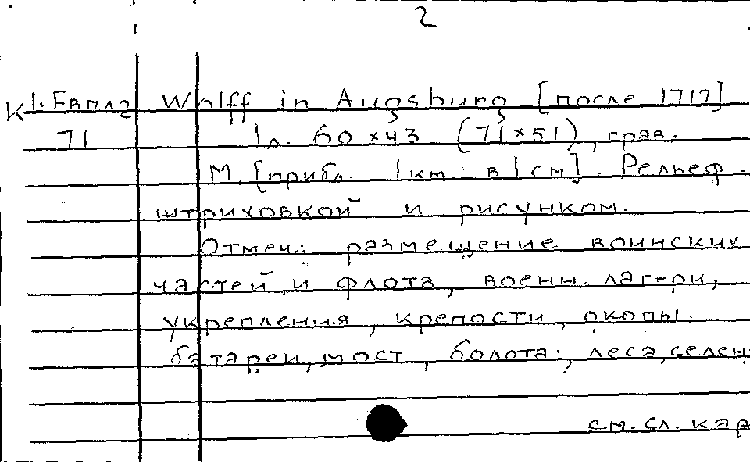 2
К 1. Евплг Wolff in Augsburg [после 1717]
71 1л. 60×43 (71×51), грав.
М. [прибл. 1км в 1см]. Рельеф -
штриховкой и рисунком.
Отмеч: размещение воинских
частей и флота, военн. лагери,
укрепления, крепости, окопы
батареи, мост, болота, леса, селен
см. сл. кар